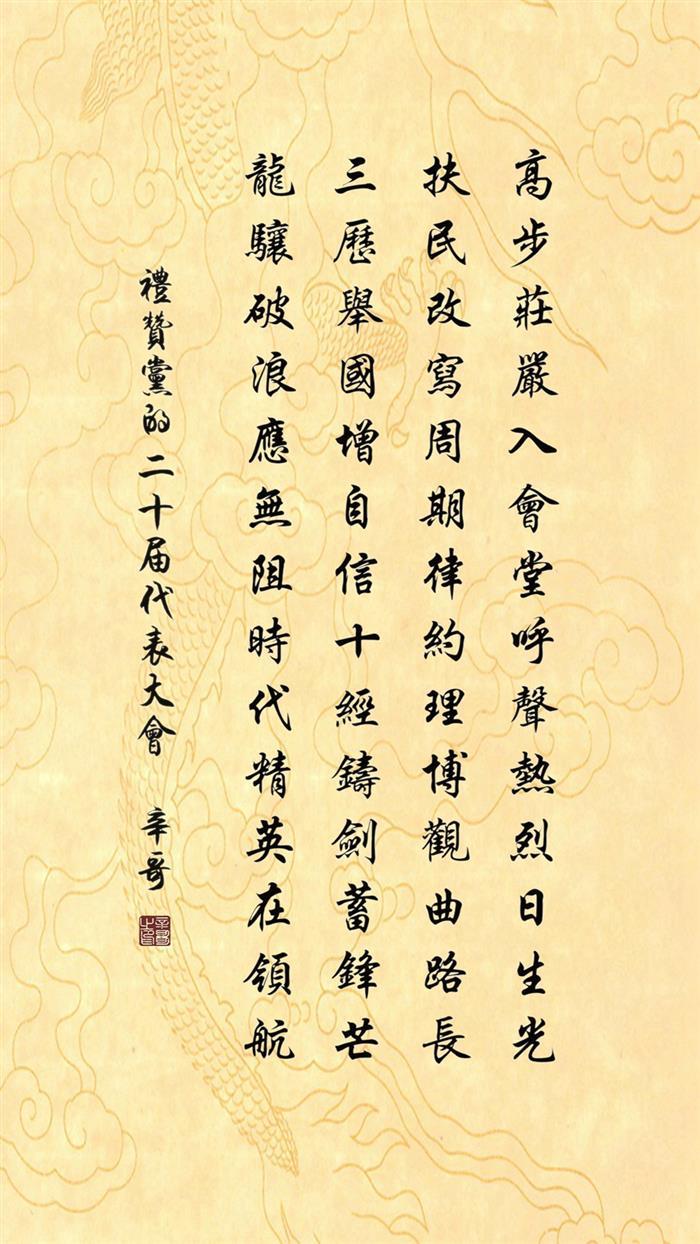 高步莊嚴入會堂呼聲熱烈日生光
扶民改寫周期律約理博觀曲路長
三歷舉國增自信十經鑄劍蓄鋒芒
龍驤破浪應無阻時代精英在領航
禮贊黨的二十届代表大會 辛哥